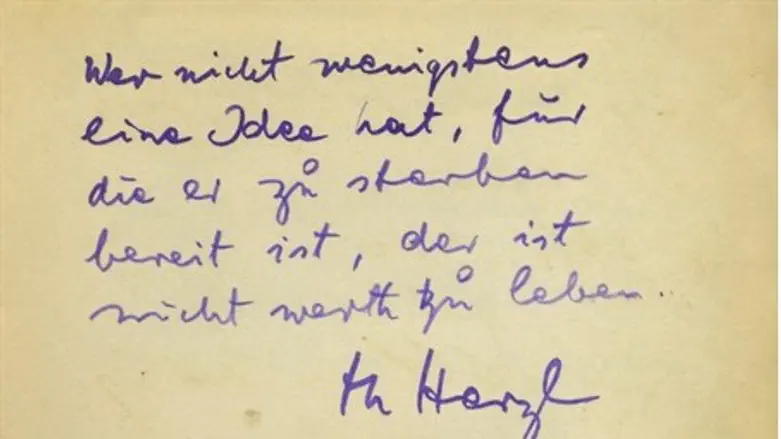 Wer nicht wenigstens
eine Idee hat, für
die er zu sterben
bereit ist, der ist
nicht werth zu leben.
Th Herzl